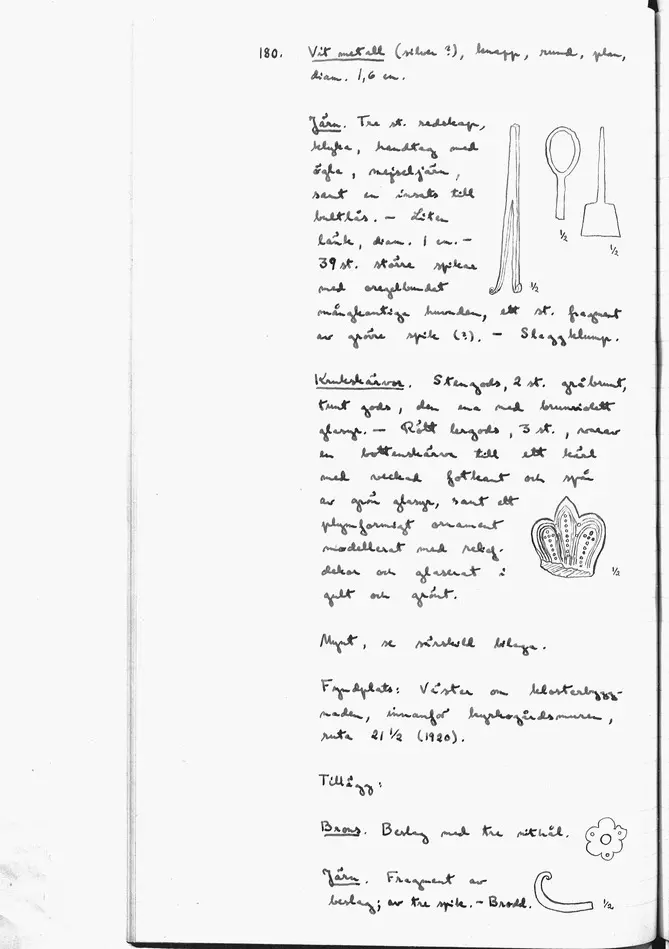 180. Vit metall (silver?), knapp, rund, plan,
diam. 1,6 cm.
Järn. Tre st. redskap,
klyka, handtag med
ögla, mejseljärn,
samt en insats till
bultlås. – Liten
länk, diam. 1 cm. –
39 st. större spikar
med oregelbundet
mångkantiga huvuden, ett st. fragment
av grövre spik (?). – Slaggklump.
1/2
1/2
1/2
Krukskärvor. Stengods, 2 st. gråbrunt,
tunt gods, den ena med brunviolett
glasyr. – Rött lergods, 3 st., varav
en bottenskärva till ett kärl
med veckad fotkant och spår
av grön glasyr, samt ett
plymformigt ornament
modellerat med relief-
dekor och glaserat i
gult och grönt.
1/2
Mynt, se särskild bilaga.
Fyndplats: Väster om klosterbygg-
naden, innanför kyrkogårdsmuren,
ruta 21 1/2 (1920).
Tillägg:
Brons. Beslag med tre nithål.
Järn. Fragment av
beslag; av tre spik. – Brodd.
1/2